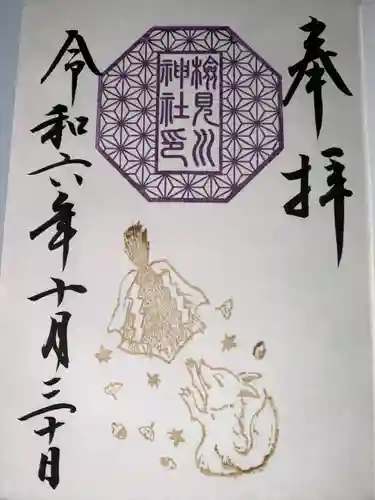 奉拝
検見川
神社印
令和六年十月三十日